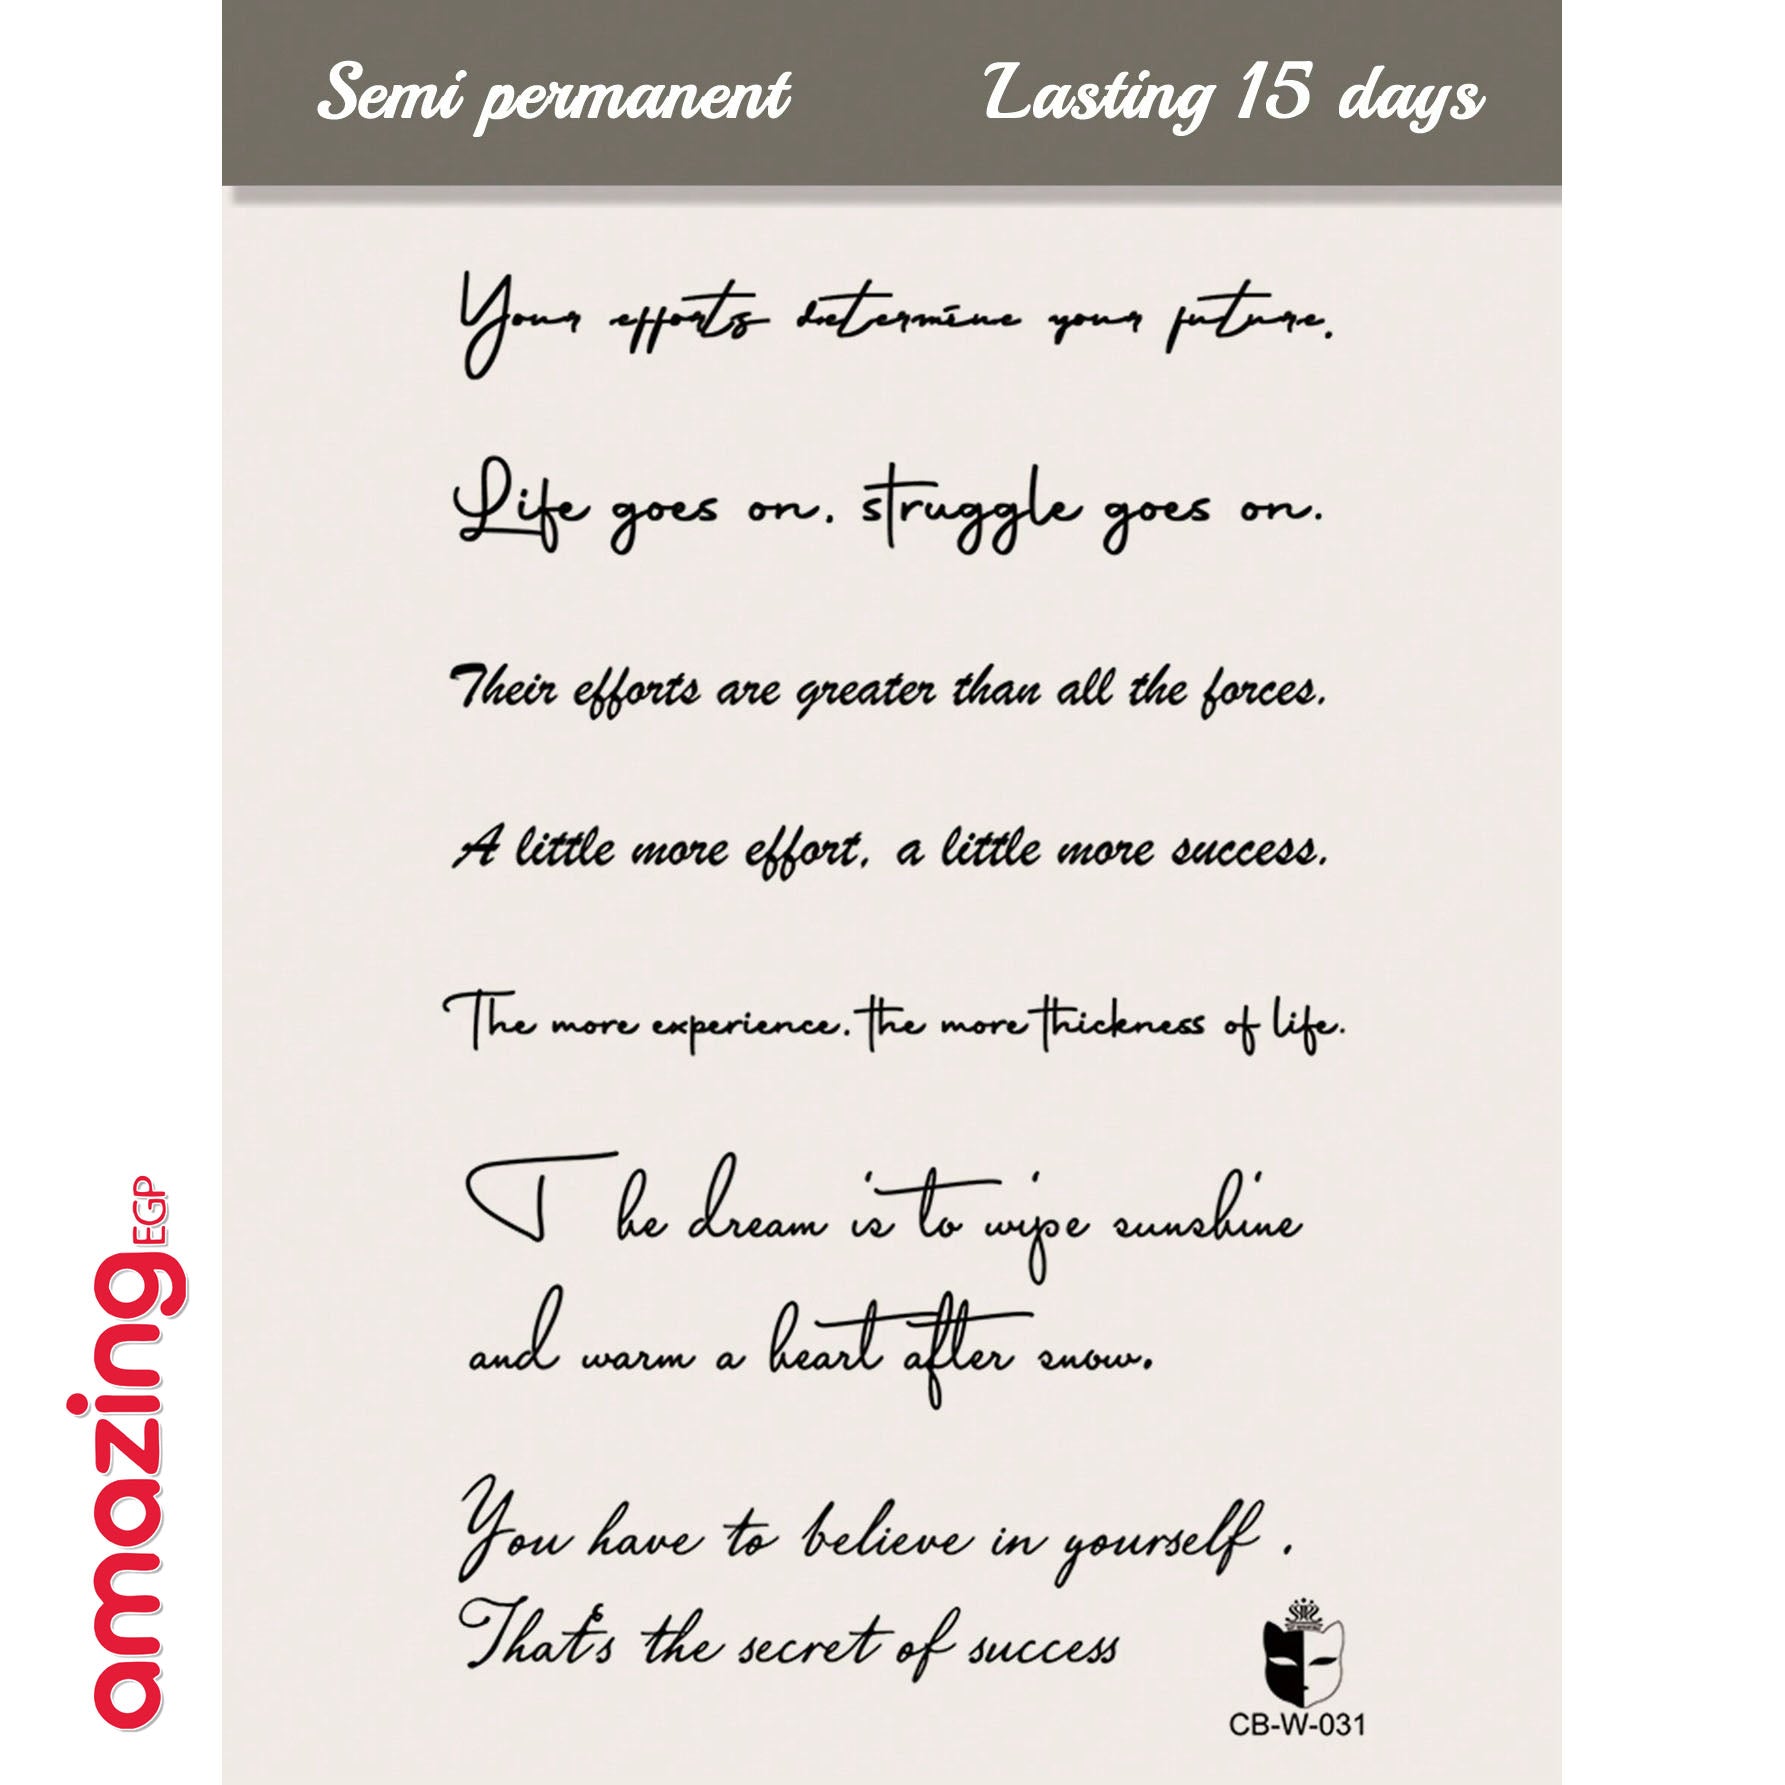 Semi permanent Lasting 15 days
Your efforts determine your future.
Life goes on. struggle goes on.
Their efforts are greater than all the forces.
A little more effort, a little more success.
The more experience. the more thickness of life.
The dream is to wipe sunshine
and warm a heart after snow.
You have to believe in yourself .
That's the secret of success
CB-W-031
amazing EGP